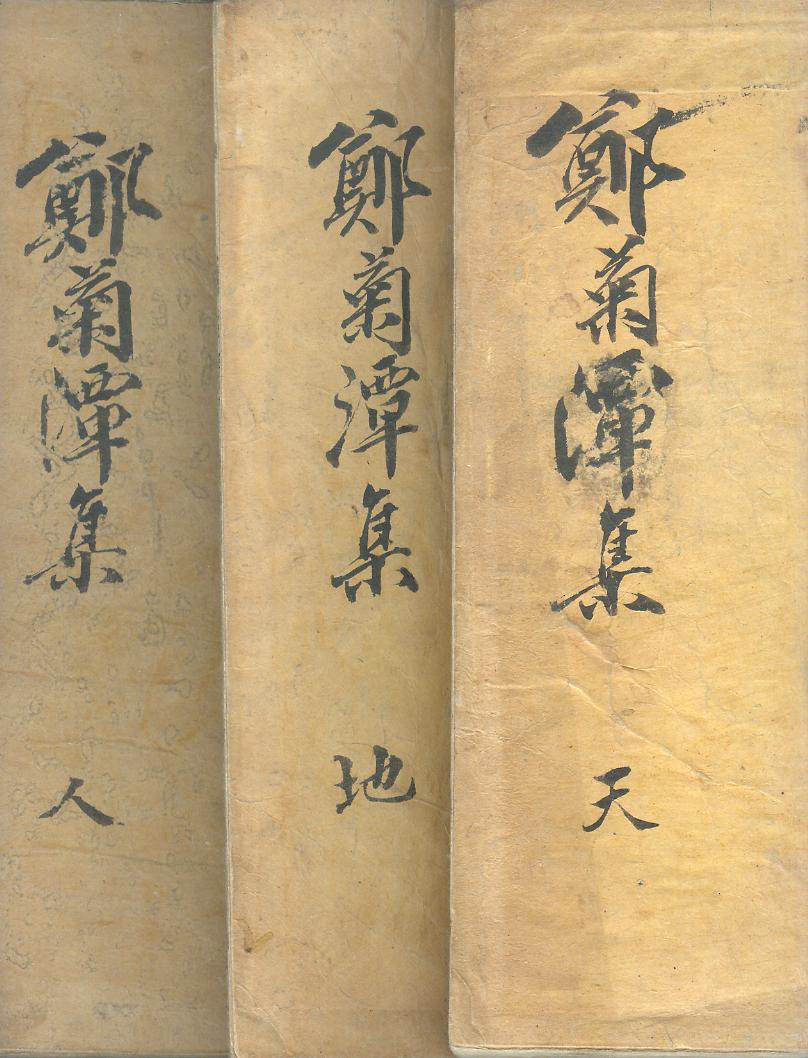 鄭菊潭集 天
鄭菊潭集 地
鄭菊潭集 人